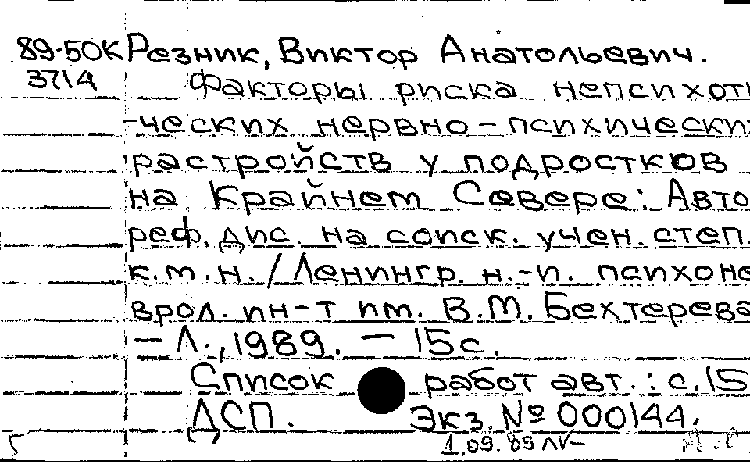 89-50к Резник, Виктор Анатольевич.
3714
Факторы риска непсихоти
-ческих нервно-психически
растройств у подростков
на Крайнем Севере: Авто
реф. дис. на соиск. учен. степ.
к.м.н. / Ленингр. н.-и. психоне
врол. ин-т им. В.М. Бехтерева
– Л., 1989. – 15с.
Список работ авт.: с.15
ДСП. Экз. № 000144.
1.09.89